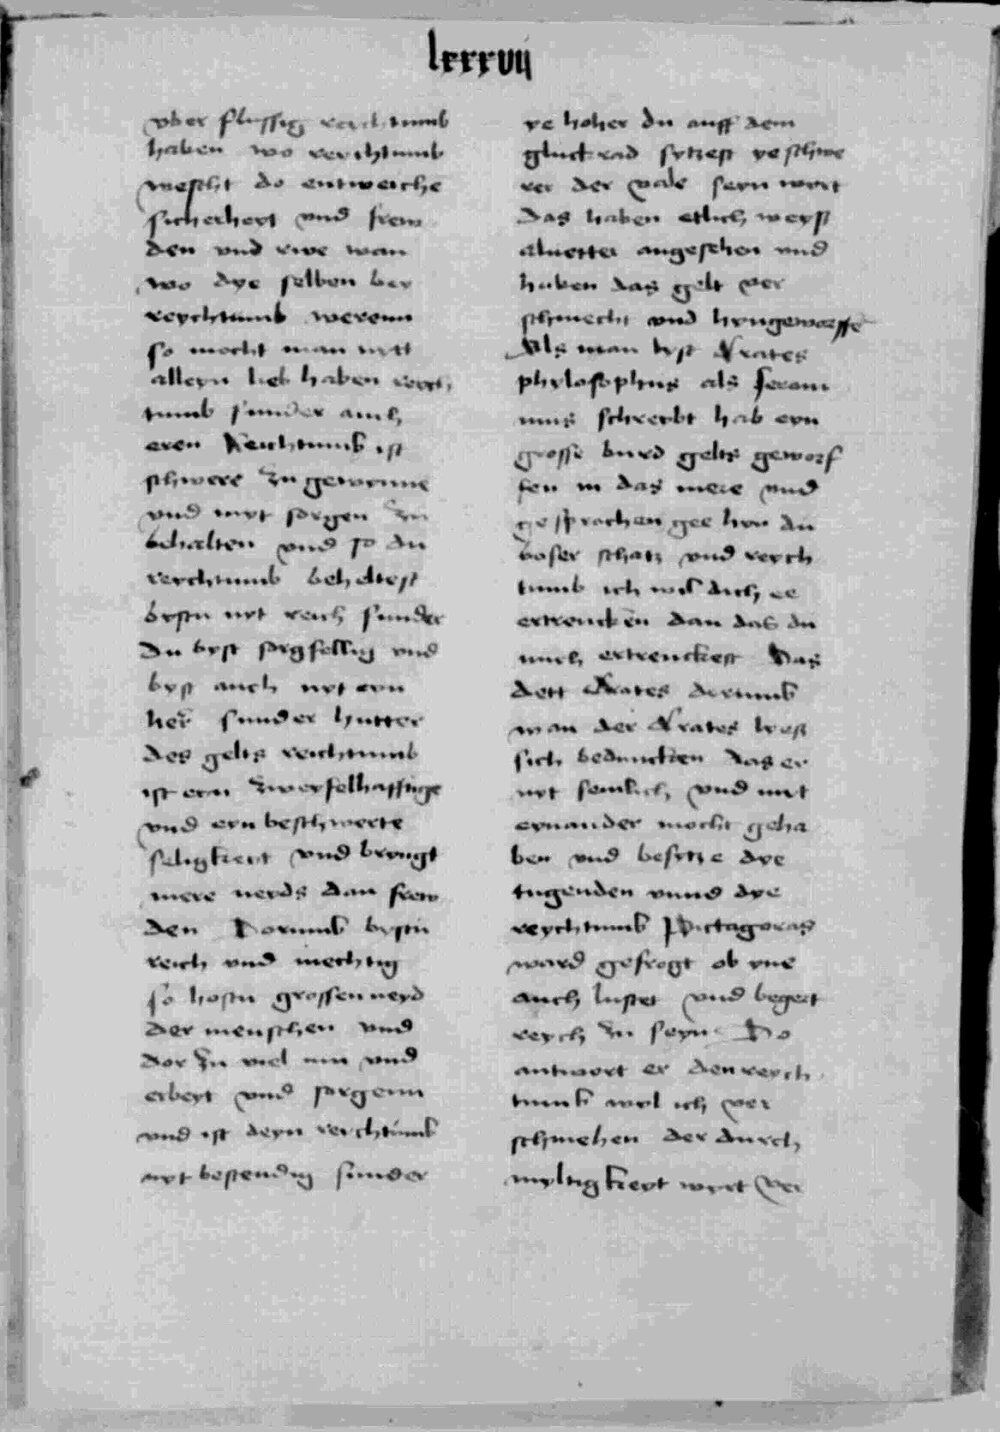 lxxxvij
vber flussig reychtumb
haben wo reychtumb
wescht do entweiche
sicherheyt vnd frew
den vnd rwe wan
wo dye selben bey
reychtumb werenn
so mocht man nytt
alleyn lieb haben reych
tumb sunder auch
eren Reichtumb ist
schwere zu gewynne
vnd myt sorgen zu
behalten vnd so du
reychtumb beheltest
bystu nyt reich sunder
du byst sorgfellig vnd
byst auch nyt eyn
her sunder hutter
des gelts reichtumb
ist eyn zweyfelhafftige
vnd eyn beschwerte
seligkeyt vnd bryngt
mere neyds dan frew
den Dorumb bystu
reich vnd mechtig
so hostu grossen neyd
der menschen vnd
dor zu viel mu vnd
erbeyt vnd sorgenn
vnd ist deyn reychtumb
nyt bestendig sunder
ye hoher du auff dem
gluckrad sytzest ye schwe
rer der vale seyn wyrt
das haben etlich weyse
angesehen vnd
haben das gelt ver
schmecht vnd hyngeworffe
Als man lyst Krates
phylosophus als Jeroni
mus schreybt hab eyn
grosse burd gelts geworf
fen in das mere vnd
gesprochen gee hyn du
boser schatz vnd reych
tumb ich wil dich ee
ertrencken dan das du
mich ertrenckest Das
dett Krates dorumb
wan der Krates lyeß
sich beduncken das er
nyt semlich vnd mit
eynander mocht geha
ben vnd besytze dye
tugenden vnnd dye
reychtumb Pictagoras
ward gefrogt ob yne
auch lustet vnd begert
reych zu seyn Do
antwort er den reych
tumb wyl ich ver
schmehen der durch
myltigkeyt wyrt ver